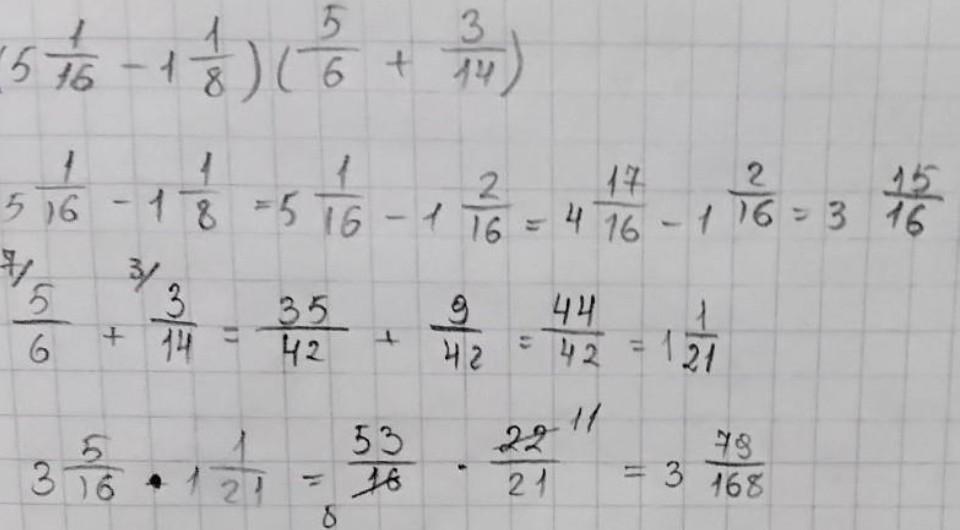 (5 1/16 - 1 1/8)(5/6 + 3/14)
5 1/16 - 1 1/8 = 5 1/16 - 1 2/16 = 4 17/16 - 1 2/16 = 3 15/16
7/ 5/6 + 3/ 3/14 = 35/42 + 9/42 = 44/42 = 1 1/21
3 5/16 · 1 1/21 = 53/16 8 · 22/21 11 = 3 79/168